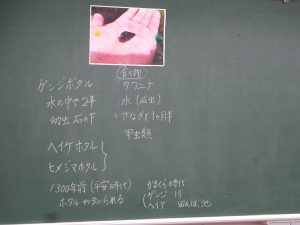 食べ物
ゲンジボタル カワニナ
水の中で2年 水(成虫)
幼虫 石の下 さなぎで1ヶ月半
甲虫類
ヘイケホタル
ヒメシマホタル
1300年前(平安時代) かまくら時代
ホタルが知られる ゲンジ 川
ヘイケ 田んぼ、池